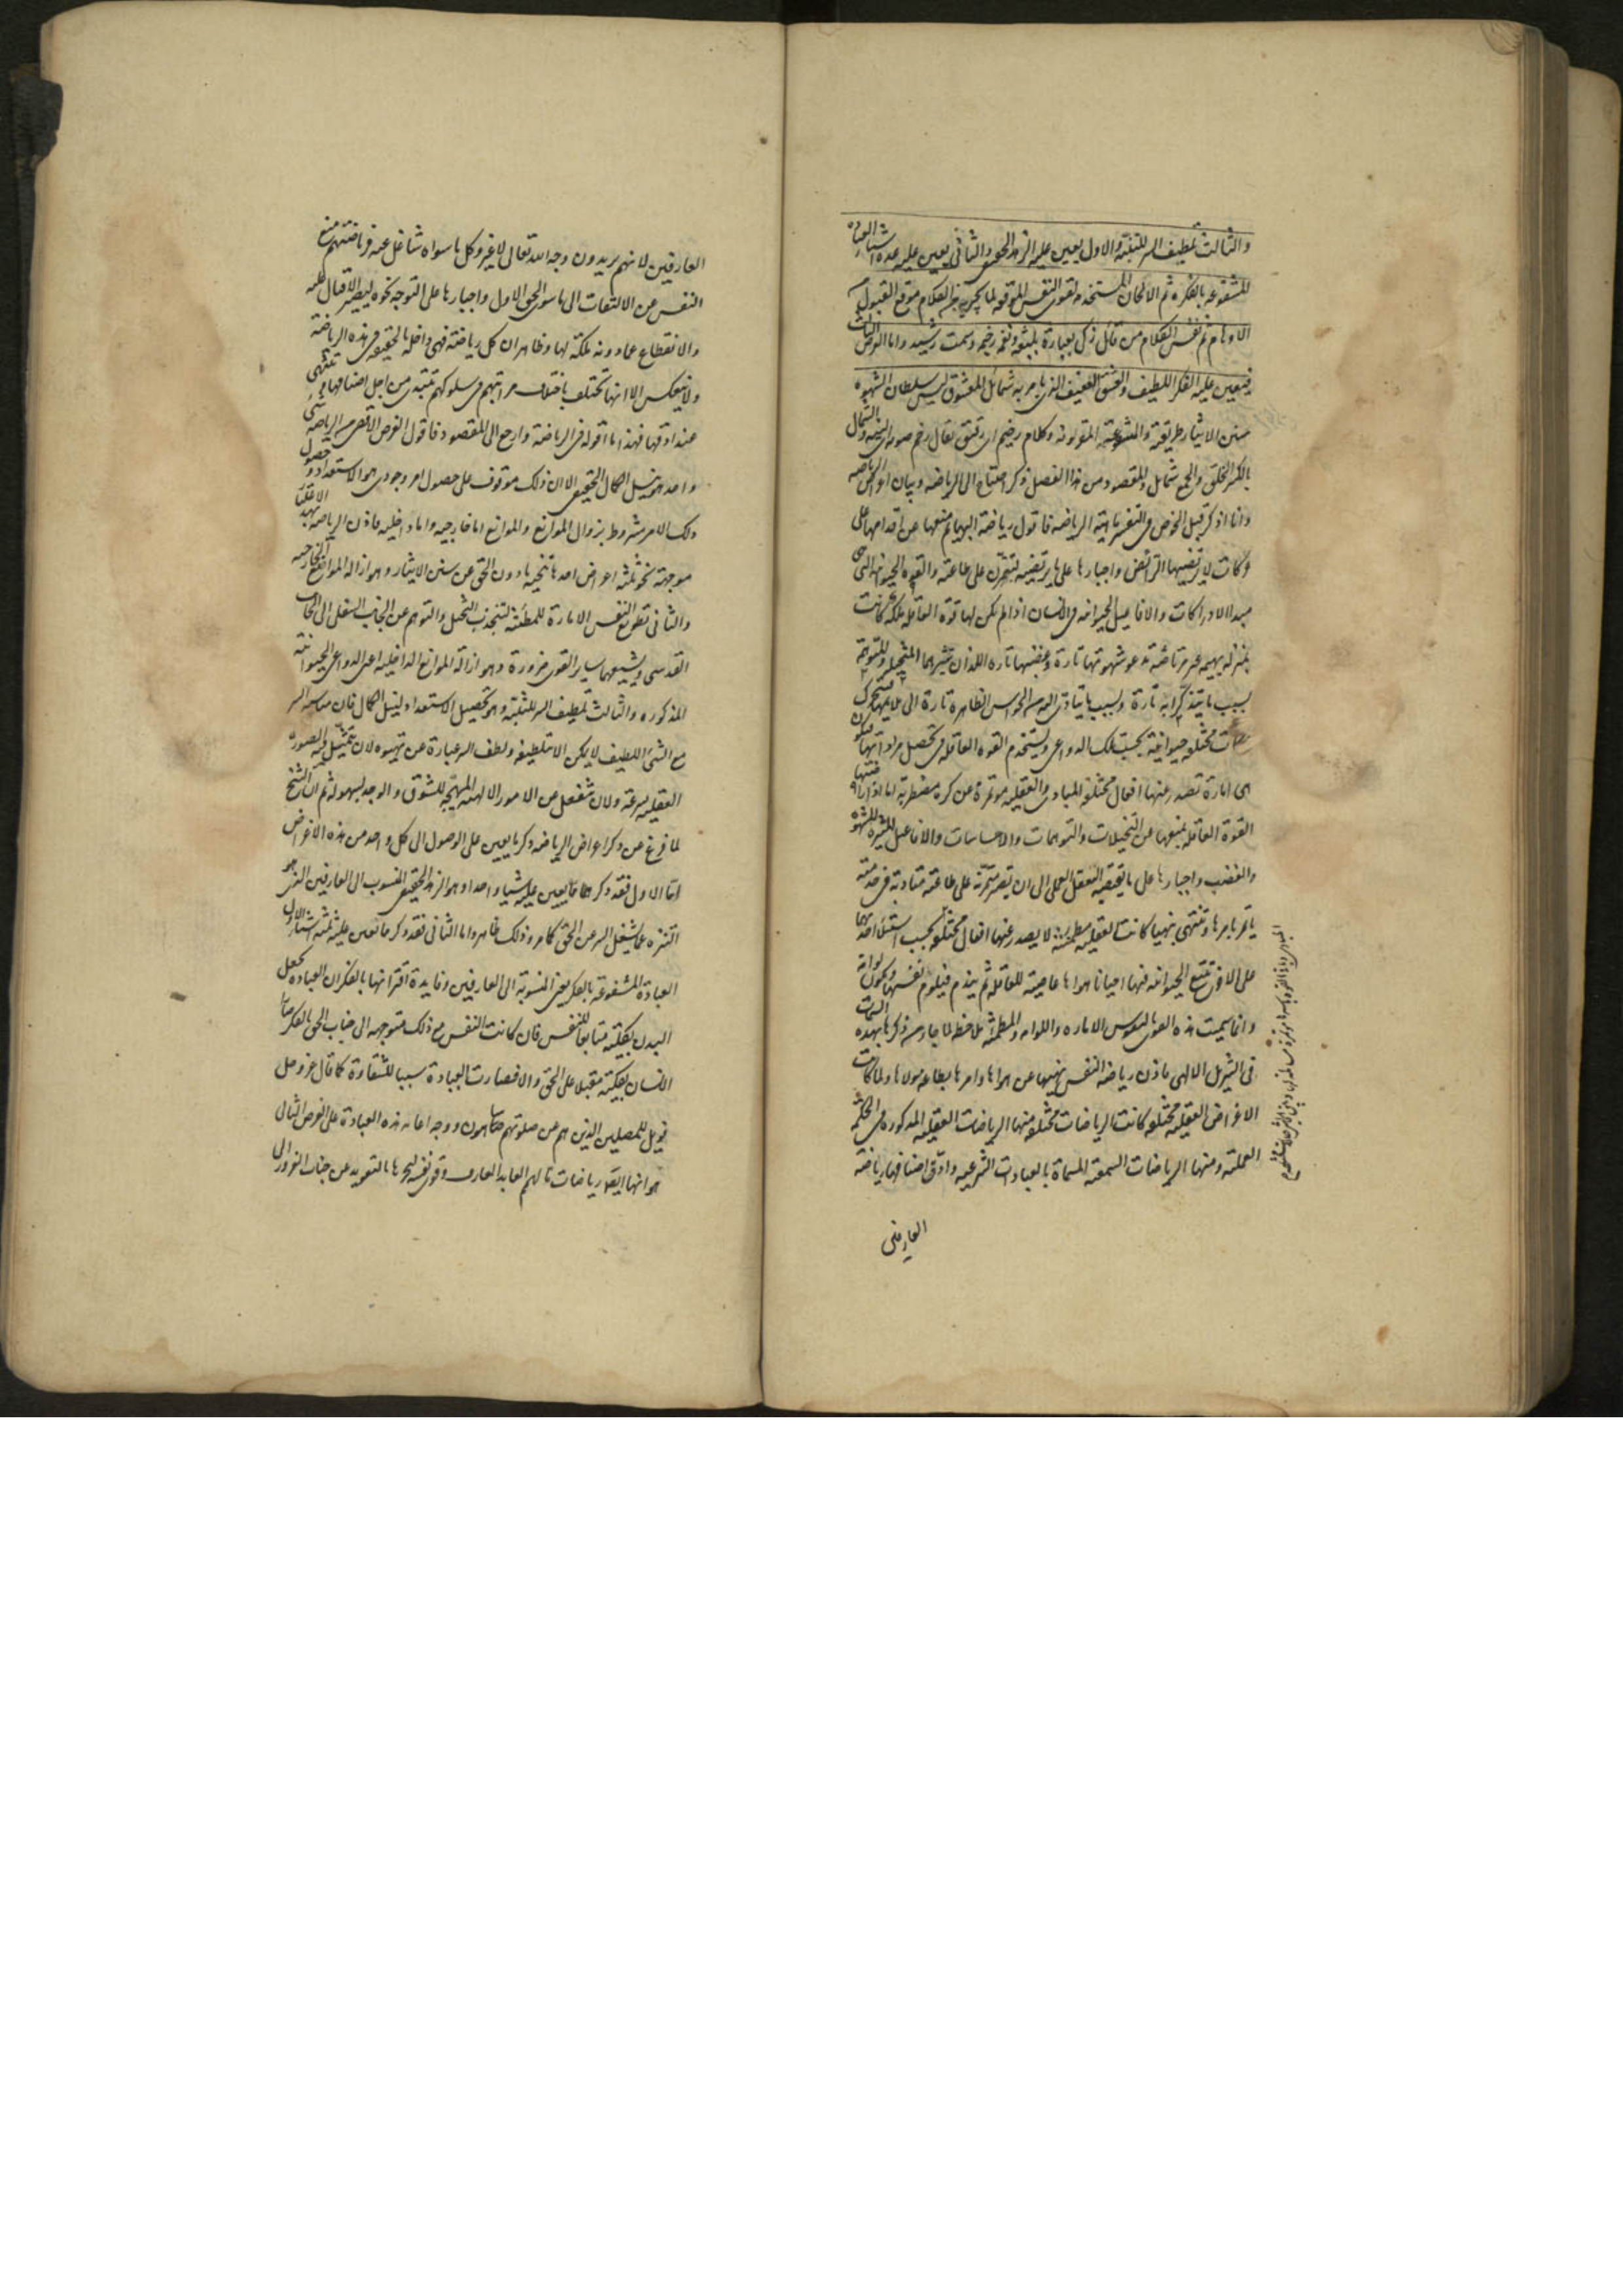 والثالث تلطيف السر للتنبه والاول يعين عليه الزهد الحقيقى والثانى يعين عليه عدة اشياء العبادة
المشفوعة بالفكرة ثم الالحان المستخدمة لقوى النفس الموقعة لما يحن به من الكلام موقع القبول من
الاوهام ثم نفس الكلام من قائل زكى بعبارة بليغة ونغمة رخيمة وسمت رشيد واما الغرض الثالث
فيعين عليه الفكر اللطيف والعشق العفيف الذى يامر به شمائل المعشوق ليس سلطان الشهوة
سنن الايثار طريقه والمشفوعة المقرونة وكلام رخيم اى رقيق يقال رخم صوته والشمال
بالكسر الخلق والجمع شمائل والمقصود من هذا الفصل ذكر احتياج الى الرياضة وبيان اغراض الرياضة
وانا اذكر قبل الخوض فى التفسير ماهية الرياضة فاقول رياضة البهائم منعها عن اقدامها على
حركات لا يرتضيها الرائض واجبارها على ما يرتضيه لتتمرن على طاعته والقوة الحيوانية التى هى
مبدا الادراكات والافاعيل الحيوانية فى الانسان اذا لم يكن لها قوة العاقلة ملكة كانت
بمنزلة بهيمة غير مرتاضة تدعوها شهوتها تارة وغضبها تارة اللذان تثيرهما المتخيلة والمتوهمة
بسبب ما يتذكرانه تارة وبسبب ما يتادى اليهما من الحواس الظاهرة تارة الى ما يلائمها فتتحرك
حركات مختلفة حيوانية بحسب تلك الدواعى ويستخدم القوة العاقلة فى تحصيل مراداتها فيكون
هى امارة تصدر عنها افعال مختلفة المبادى والعقلية مؤتمرة عن كره مضطربة اما اذا راضتها
القوة العاقلة بمنعها عن التخيلات والتوهمات والاحساسات والافاعيل المثيرة للشهوة
والغضب واجبارها على ما يقتضيه العقل العملى الى ان تصير متمرنة على طاعته متادبة فى خدمته
ياتمر بامرها وتنتهى بنهيها كانت العقلية مطمئنة لا يصدر عنها افعال مختلفة بحسب استيلاء احدهما
على الاخرى تتبع الحيوانية فيها احيانا هواها عاصية للعاقلة ثم يندم فيلوم نفسها وتكون لوامة
وانما سميت هذه القوى بالنفوس الامارة واللوامة والمطمئنة ملاحظة لما جاء من ذكرها بهذه السمات
فى التنزيل الالهى فاذن رياضة النفس نهيها عن هواها وامرها بطاعة مولاها ولما كانت
الاغراض العقلية مختلفة كانت الرياضات مختلفة منها الرياضات العقلية المذكورة فى الحكمة
العملية ومنها الرياضات السمعية المسماة بالعبادات الشرعية وادق اصنافها رياضة
العارفين
العارفين لانهم يريدون وجه الله تعالى لا غير وكل ما سواه شاغل عنه فرياضتهم منع
النفس عن الالتفات الى ما سوى الحق الاول واجبارها على التوجه نحوه ليصير الاقبال عليه
والانقطاع عما دونه ملكة لها وظاهر ان كل رياضة فهى داخلة بالحقيقة فى هذه الرياضة
ولا ينعكس الا انها تختلف باختلاف مراتبهم فى سلوكهم تبتدى من اجل اصنافها وتنتهى
عند ادقها فهذا ما اقوله فى الرياضة وارجع الى المقصود فاقول الغرض الاقصى من الرياضة شىء
واحد هو نيل الكمال الحقيقى الا ان ذلك موقوف على حصول امر وجودى هو الاستعداد وحصول
ذلك الامر مشروط بزوال الموانع والموانع اما خارجية واما داخلية فاذن الرياضة بهذا الاعتبار
موجهة نحو ثلثة اغراض احدها تنحية ما دون الحق عن سنن الايثار وهو ازالة الموانع الخارجية
والثانى تطويع النفس الامارة للمطمئنة لتنجذب التخيل والتوهم عن الجانب السفلى الى الجانب
القدسى ويشيعها ساير القوى ضرورة وهو ازالة الموانع الداخلية اعنى الدواعى الحيوانية
المذكورة والثالث تلطيف السر للتنبه وهو تحصيل الاستعداد لنيل الكمال فان مناسبة السر
مع الشىء اللطيف لا يمكن الا بتلطيفه ولطف السر عبارة عن تهيئه لان تتمثل فيه الصورة
العقلية بسرعة ولان ينفعل عن الامور الالهية المهيجة للشوق والوجد بسهولة ثم ان الشيخ
لما فرغ عن ذكر اغراض الرياضة ذكر ما يعين على الوصول الى كل واحد من هذه الاغراض
اما الاول فقد ذكر مما يعين عليه شيئا واحدا وهو الزهد الحقيقى المنسوب الى العارفين الذى هو
التنزه عما يشغل السر عن الحق كما مر وذلك ظاهر واما الثانى فقد ذكر مما يعين عليه ثلثة اشياء الاول
العبادة المشفوعة بالفكر يعنى المنسوبة الى العارفين وفايدة اقترانها بالفكر ان العبادة تجعل
البدن بكليته متابعا للنفس فان كانت النفس مع ذلك متوجهة الى جناب الحق بالفكر صار
الانسان بكليته مقبلا على الحق والا فصارت العبادة سببا للشقاوة كما قال عز وجل
فويل للمصلين الذين هم عن صلوتهم ساهون ووجه اعانة هذه العبادة على الغرض الثانى
هو انها ايضا رياضات ما لهمم العابد العارف وقوى نفسه ليجرها بالتعويد عن جناب الغرور الى